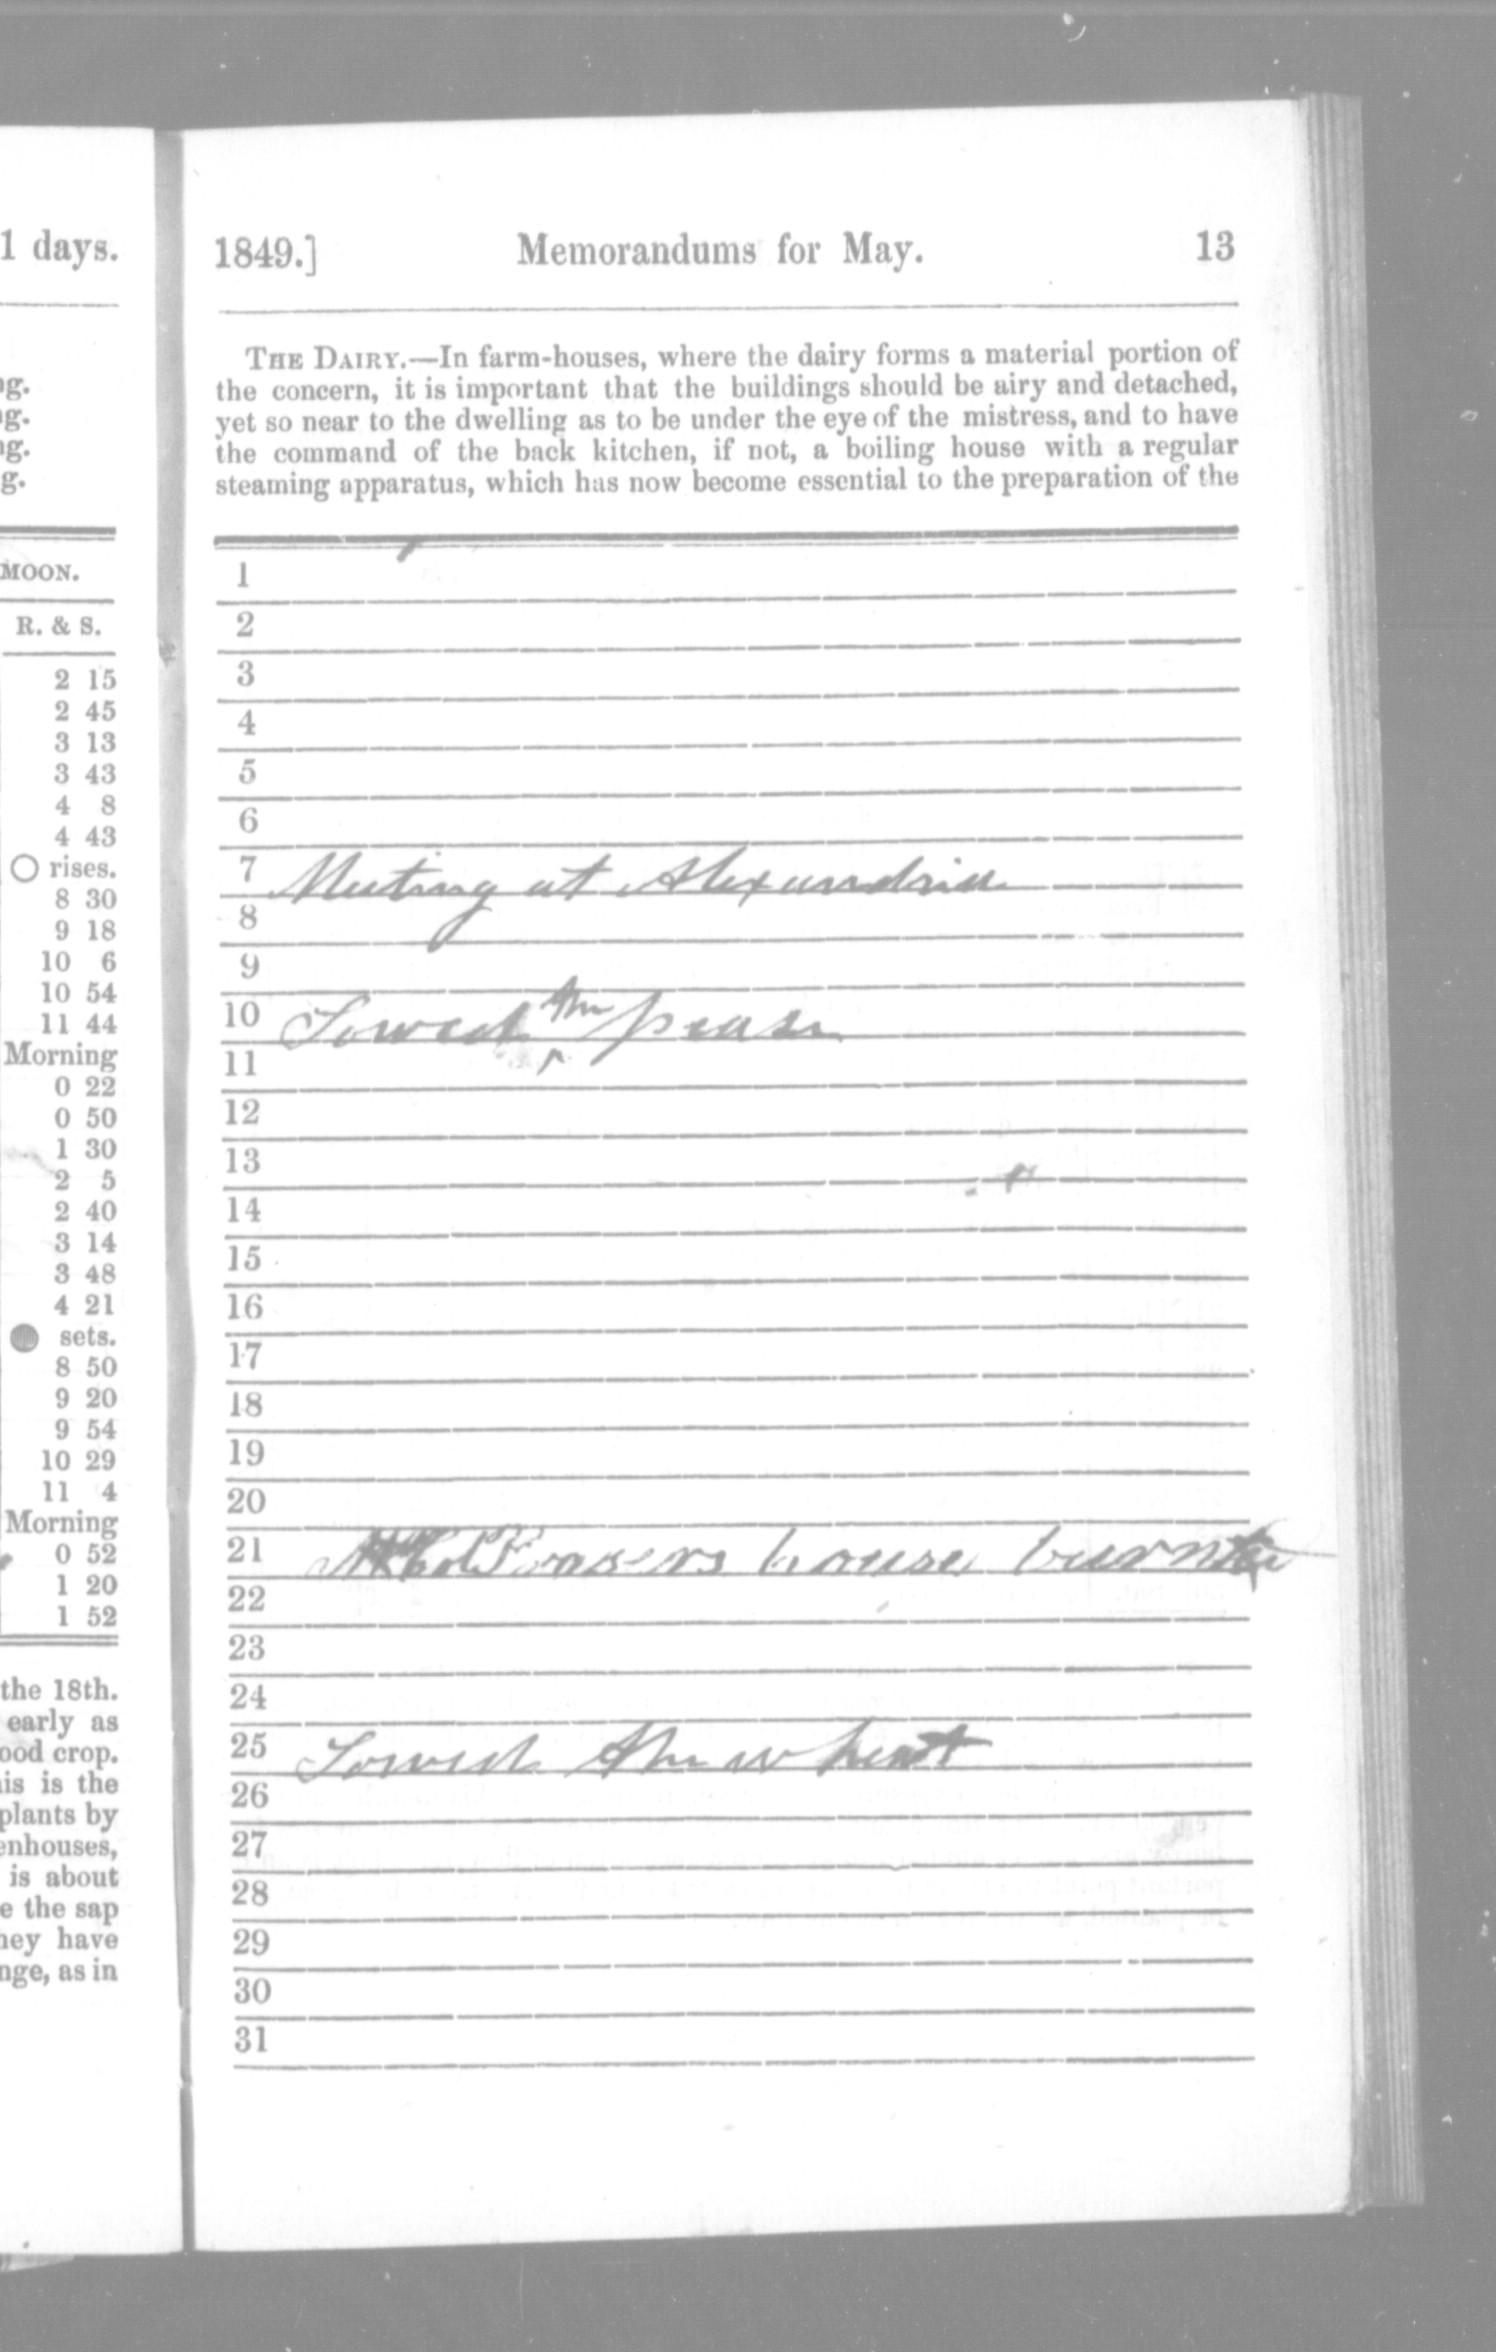 1 days.
ng.
ng.
ng.
g.
MOON.
R. & S.
2 15
2 45
3 13
3 43
4 8
4 43
rises.
8 30
9 18
10 6
10 54
11 44
Morning
0 22
0 50
1 30
2 5
2 40
3 14
3 48
4 21
sets.
8 50
9 20
9 54
10 29
11 4
Morning
0 52
1 20
1 52
the 18th.
early as
ood crop.
is is the
plants by
enhouses,
is about
e the sap
hey have
nge, as in
1849.] Memorandums for May. 13
THE DAIRY.—In farm-houses, where the dairy forms a material portion of
the concern, it is important that the buildings should be airy and detached,
yet so near to the dwelling as to be under the eye of the mistress, and to have
the command of the back kitchen, if not, a boiling house with a regular
steaming apparatus, which has now become essential to the preparation of the
1
2
3
4
5
6
7 Meeting at Alexandria
8
9
10 Sowed the pease
11
12
13
14
15
16
17
18
19
20
21 house burnt
22
23
24
25 Sowed the wheat
26
27
28
29
30
31